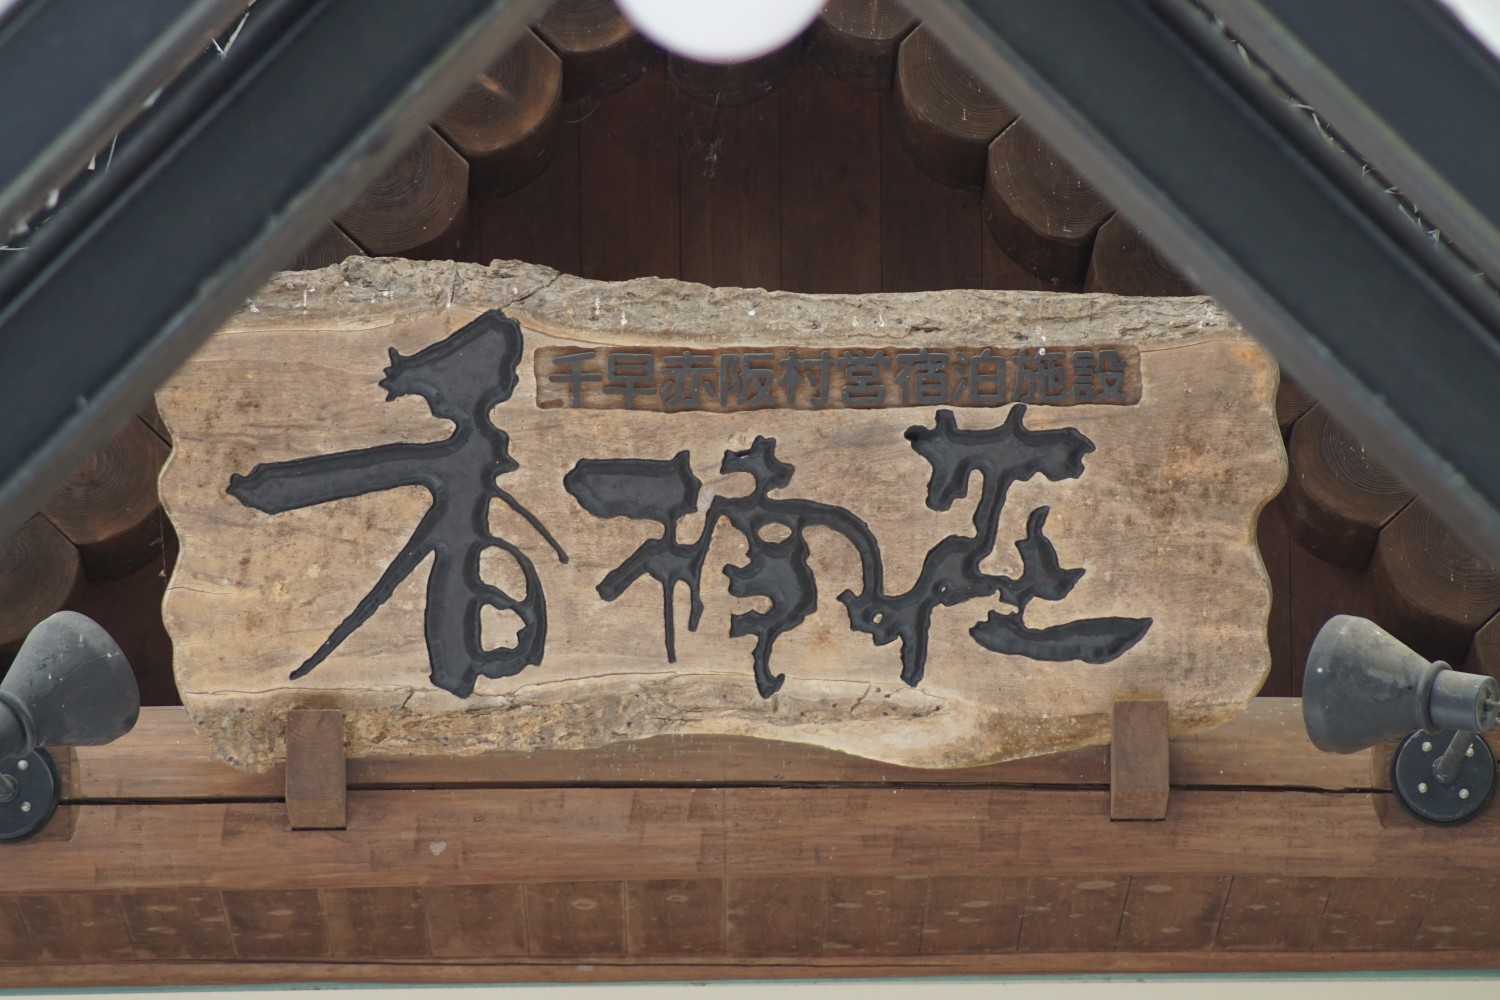 千早赤阪村営宿泊施設
香楠荘